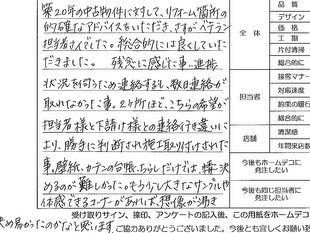 築20年の中古物件に対して、リフォーム箇所の
的確なアドバイスをいただき、さすがベテラン
担当者さんでした。総合的には良くしていた
だきました。 残念に感じた事 進捗
状況を伺うため連絡するも、数日連絡が
取れなかった事。2か所ほど、こちらの希望が
担当者様と下請け様との連絡行き違いに
より、勝手に判断され施工取り付けされた
事。壁紙、カーテンの台帳、ちらしだけでは、
めるのが難しかった。もう少し大きなサンプルや
体感できるコーナーがあれば、想像が沸き
決め易かったのかなと思います。
全体
品質
デザイン
価格
工期
片付清掃
総合的に
担当者
接客マナー
対応速度
約束の履行
総合的に
店舗
清潔感
今後もホームデコに
発注したい
今後も同じ担当者に
発注したい
受け取りサイン、捺印、アンケートの記入後、この用紙をホームデコ
ご協力ありがとうございました。今後とも宜しくお願い致